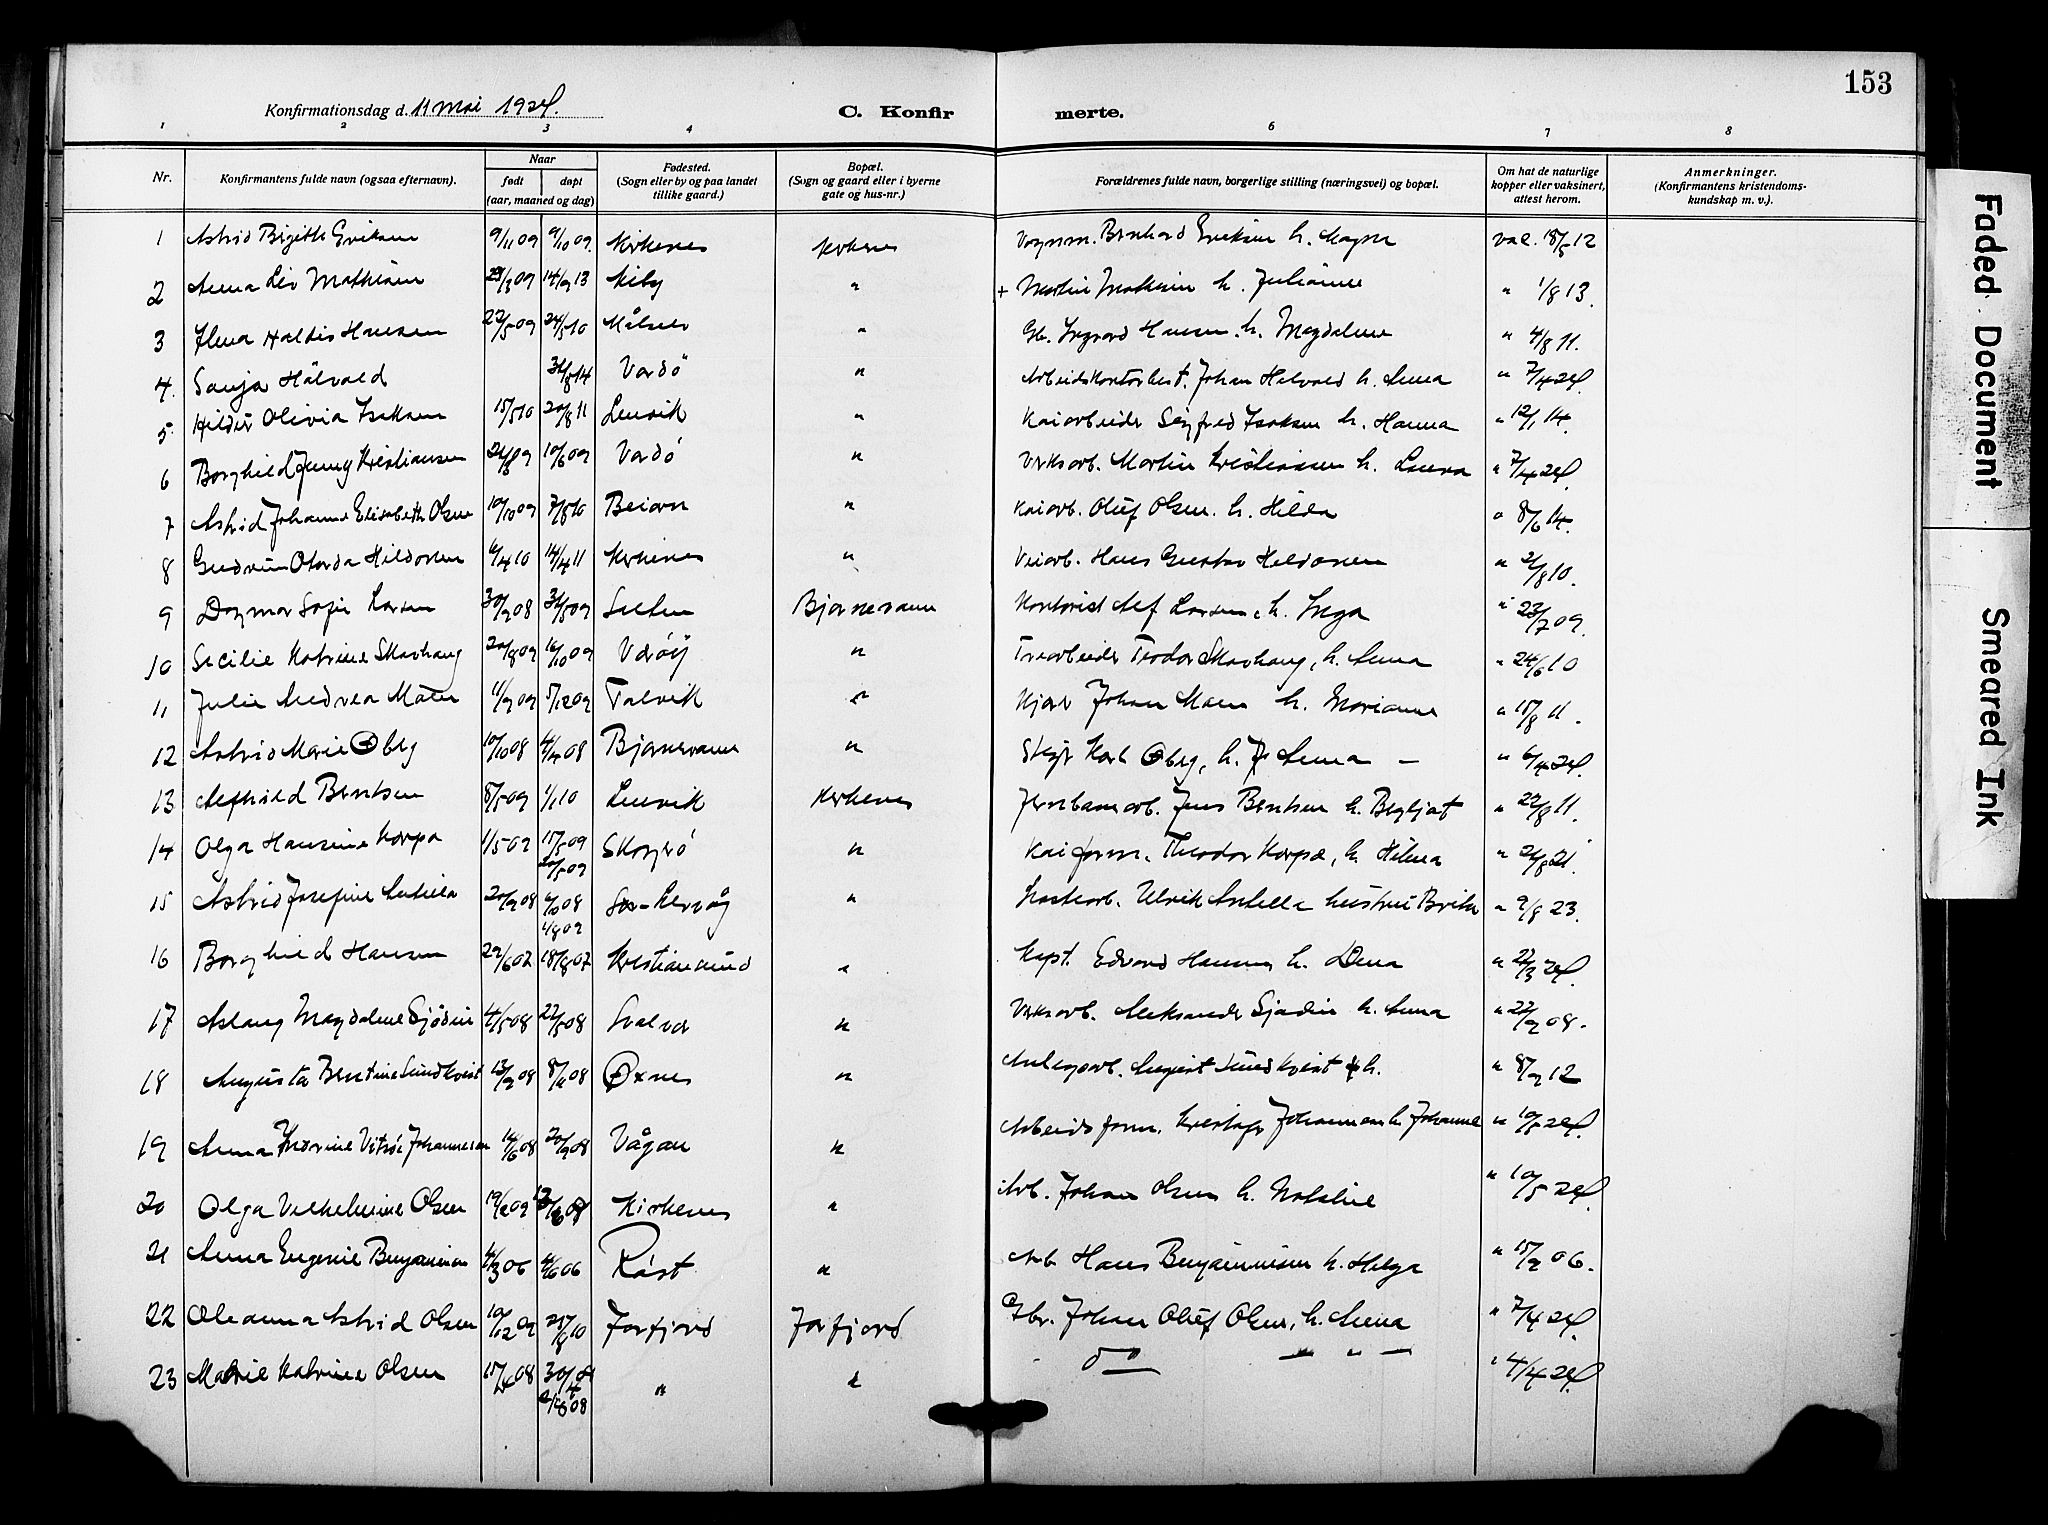 153
Konfirmationsdag d. 11 mai 1924.
C. Konfirmerte.
1 2 3 4 6 7 8
Nr.
Konfirmantens fulde navn (ogsaa efternavn).
Naar
født døpt
(aar, maaned og dag)
Fødested.
(Sogn eller by og paa landet
tillike gaard.)
Bopæl.
(Sogn og gaard eller i byerne
gate og hus-nr.)
Forældrenes fulde navn, borgerlige stilling (næringsvei) og bopæl.
Om hat de naturlige
kopper eller vaksinert,
attest herom.
Anmerkninger.
(Konfirmantens kristendoms-
kundskap m. v.).
1 Astrid Birgith Eriksen 9/11 09 Kirkenes Kirkenes Bernhard Eriksen h. Magna vac. 18/5 12
2 Anna Liv Mathisen 23/3 09 14/9 13 Kiby " + Martin Mathisen h. Julianne " 1/8 13.
3 Haldis Hansen 22/5 09 24/5 10 Målselv " Gb. Ingvard Hansen h. Magdalene " 4/8 11.
4. Sanja Hålvald 31/8 14 Vardö " Arbeidskontorbest. Johan Halvald h. Anna " 7/4 24.
5. Hildur Olivia Isaksen 15/5 10 20/8 11 Lenvik " Kaiarbeider Seigfred Isaksen h. Hanna " 12/1 14.
6 Borghild Jenny Kristiansen 10/6 09 Vardö " Verksarb. Martin Kristiansen h. Laura " 7/4 24.
7 Astrid Johanne Elisabeth Olsen 10/10 09 7/8 10 Beiarn " Kaiarb. Oluf Olsen. h. Hilda " 8/6 14.
8 Gudrun Otarda Hildonen 6/4 10 14/4 11 Kirkenes " Veiarb. Hans Gustav Hildonen " 2/8 10.
9 Dagmar Sofie Larsen 30/9 08 31/5 09 Salten Bjørnevann Kontorist Alf Larsen, h. Inga " 23/7 09.
10 Secilie Katrine Skavhaug 20/8 09 16/10 09 Værøy " Trearbeider Teodor Skavhaug, h. Anna " 24/6 10
11 Julie Andrea Mälen 11/9 09 5/12 09 Talvik " Johan Maen h. Marianne " 15/8 11.
12 Astrid Marie Øberg 10/10 08 Bjørnevann " Stiger Karl Øberg, h. Anna — " 6/4 24.
13 Alfhild Berntsen 8/5 09 1/1 10 Lenvik Kirkenes Jernbanearb. Jens Berntsen h. Bergljot " 22/8 11.
14 Olga Hansine Korpa 1/5 09 15/5 09 Skjervö " Kaiform. Theodor Korpa, h. Hilma " 21/8 21.
15 Astrid Josefine Antila 20/9 08 6/10 08 Sør-Lervåg " Ulrik Antella hustru Brita " 9/8 23.
16 Borghild Hansen 29/6 07 18/8 07 Kristiansund " Kapt. Edvard Hansen h. Dina " 22/3 24.
17 Aslaug Magdalene Sjödin 4/5 08 22/5 08 Svolvær " Verksarb. Aleksander Sjødin h. Anna " 22/9 08.
18 Augusta Bentine Lundkvist 13/9 08 8/11 08 Øxnes " Anlegsarb. August Lundkvist h. " 8/9 12
19 Anna Johannesen 14/6 08 20/9 08 Vågan " Arbeidsform. Kristofer Johannesen h. Johanne " 10/5 24.
20 Olga Vilhelmine Olsen Kirkenes " Arb. Johan Olsen h. Natalie " 10/5 24.
21 Anna Eugenie Benjaminsen 4/3 06 4/6 06 Röst " Arb Hans Benjaminsen h. Helga " 15/9 06.
22 Oleanna Astrid Olsen 10/12 09 21/8 10 Jarfjord Jarfjord Gbr. Johan Oluf Olsen, h. Anna " 7/4 24.
23 Marie Katrine Olsen 15/4 08 " " do — " — " 4/4 24.
2/8 08
Faded Document
Smeared Ink